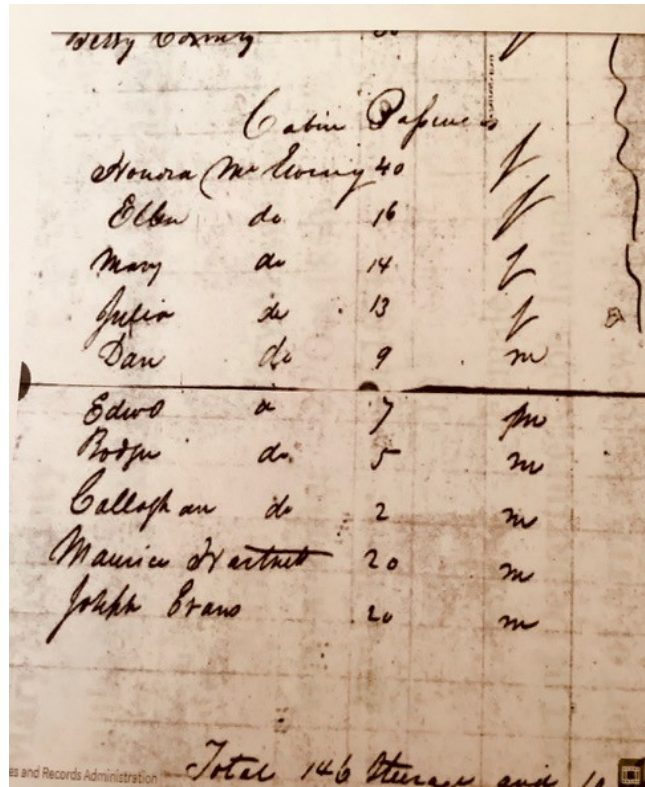 Betty
Cabin Passengers
Honora 40 f
Ellen do 16 f
Mary do 14 f
Julia do 13 f
Dan do 9 m
Edwd do 7 m
Rodger do 5 m
Callaghan do 2 m
Maurice Hartnett 20 m
Joseph Evans 20 m
Total 146 Steerage and 10
es and Records Administration